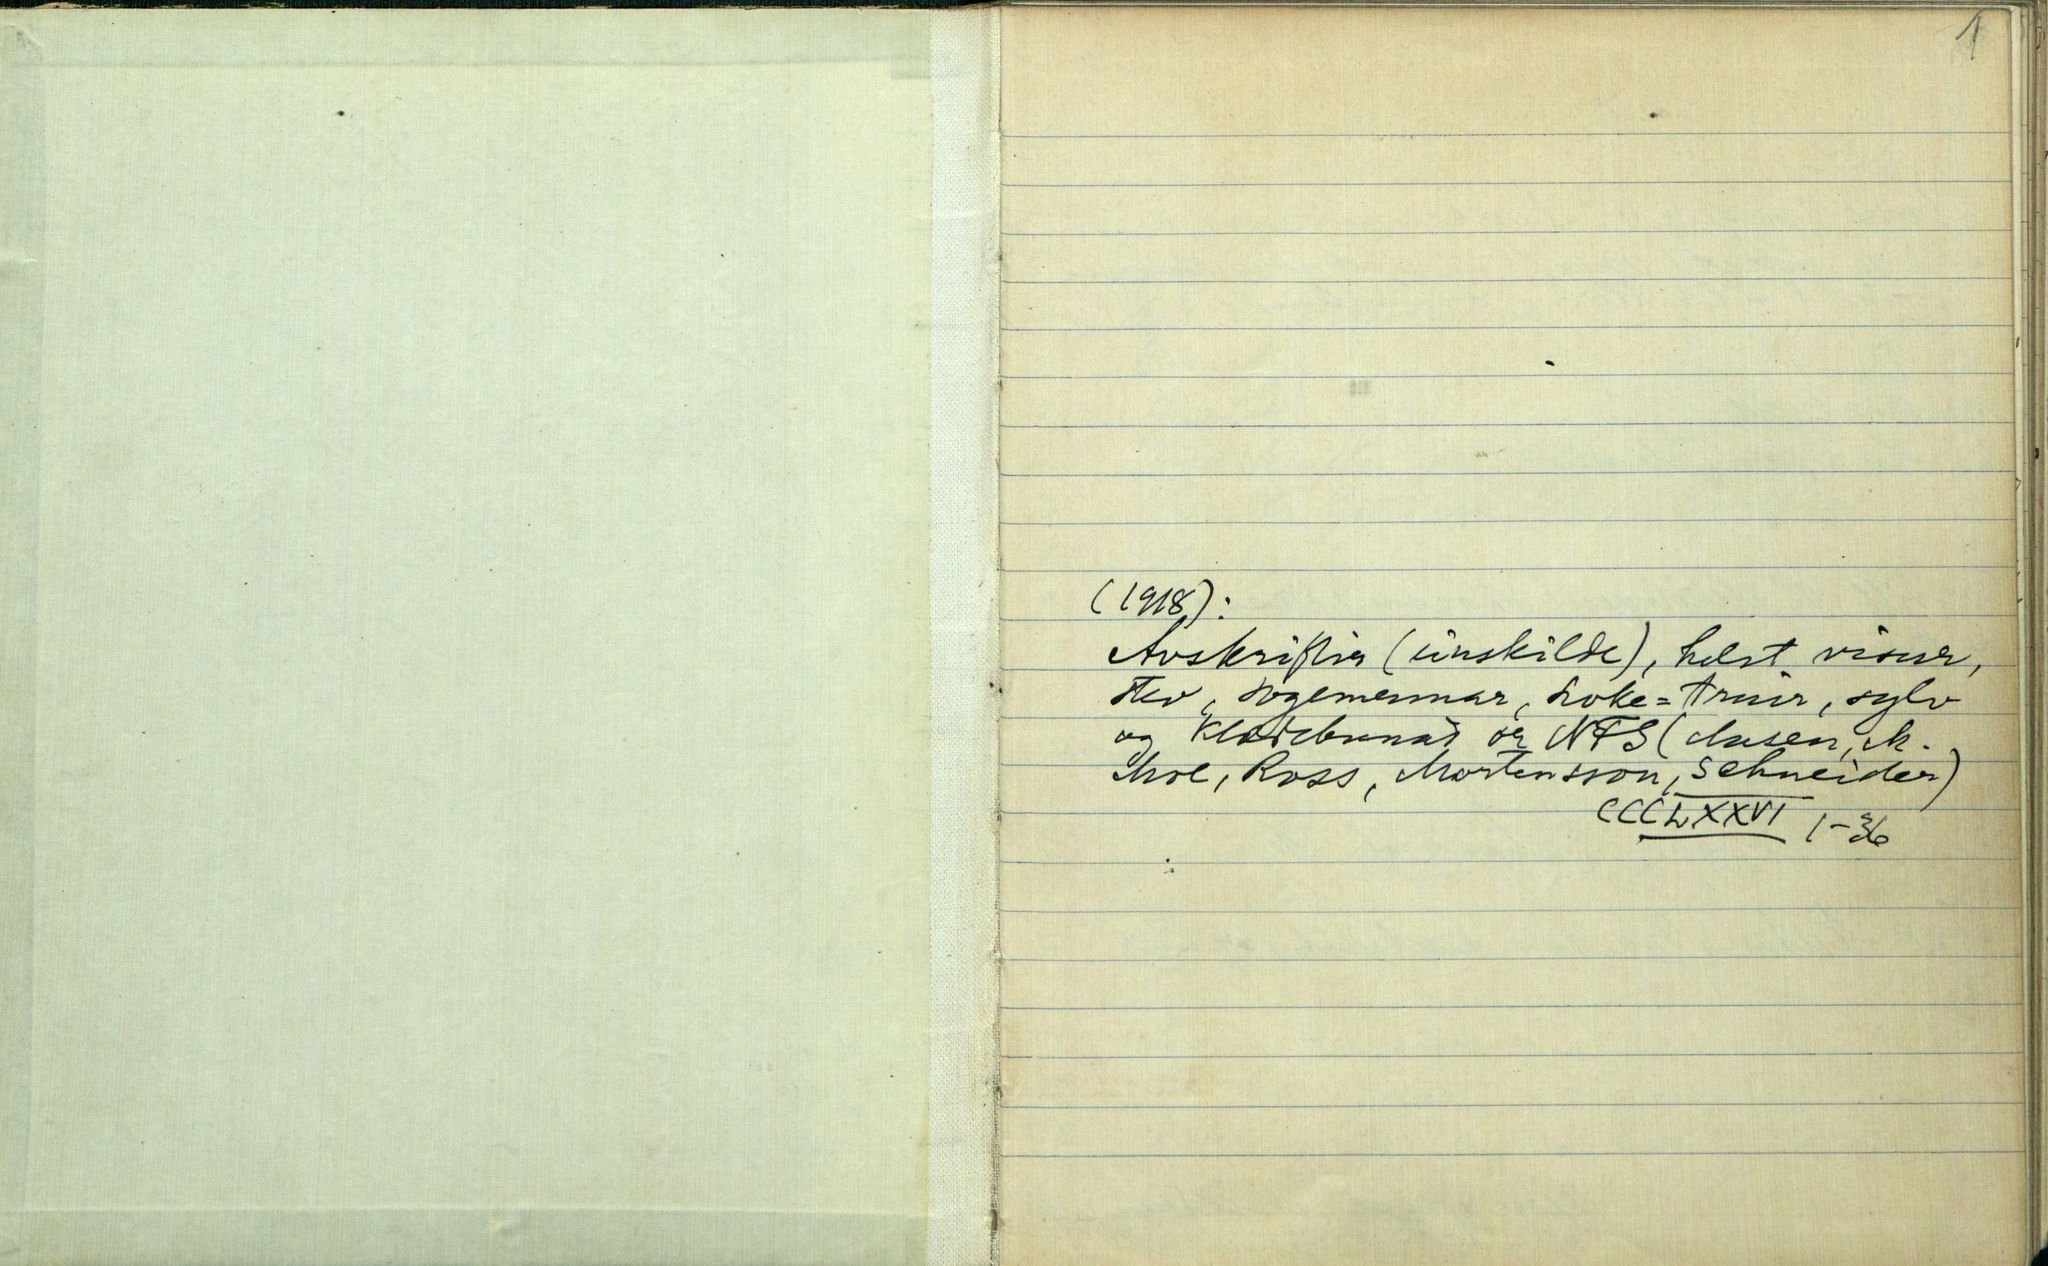 1
(1918):
Avskrifter (einskilde), helst visur,
stev, sogemennar, hoke= truir, sylv
og klædebunad or NFS (Aasen, M.
Moe, Ross, Mortensson, Schneider)
CCCLXXVI 1-36